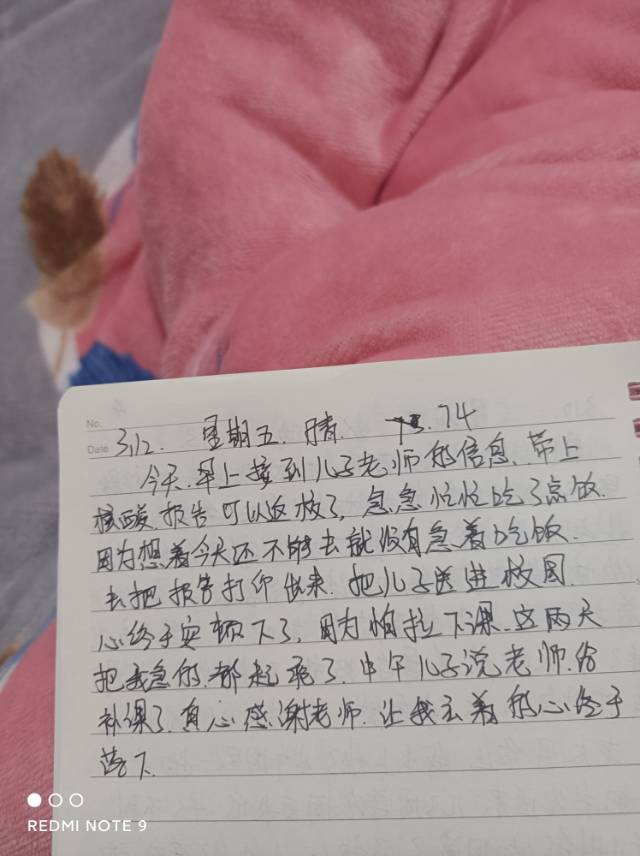 No.
Date 3.12. 星期五. 晴. 73.74
今天.早上接到儿子老师的信息、带上
核酸.报告可以返校了, 急急忙忙吃了点饭.
因为想着今天还不能去就没有急着吃饭.
去把报告打印出来.把儿子送进校园.
心终于安顿下了, 因为怕拉下课.这两天
把我急的.都起疱了.中午儿子说老师.给
补课了.真心感谢老师.让我玄着的心终于
落下
REDMI NOTE 9